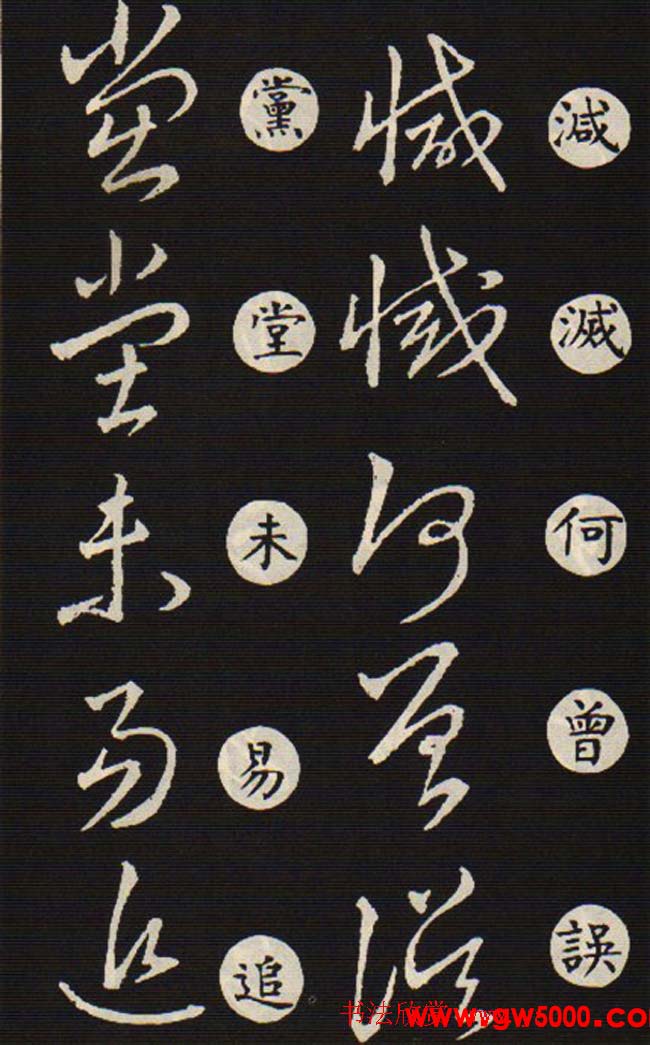 減滅何曾誤
黨堂未易追
书法欣赏
www.yw5000.com